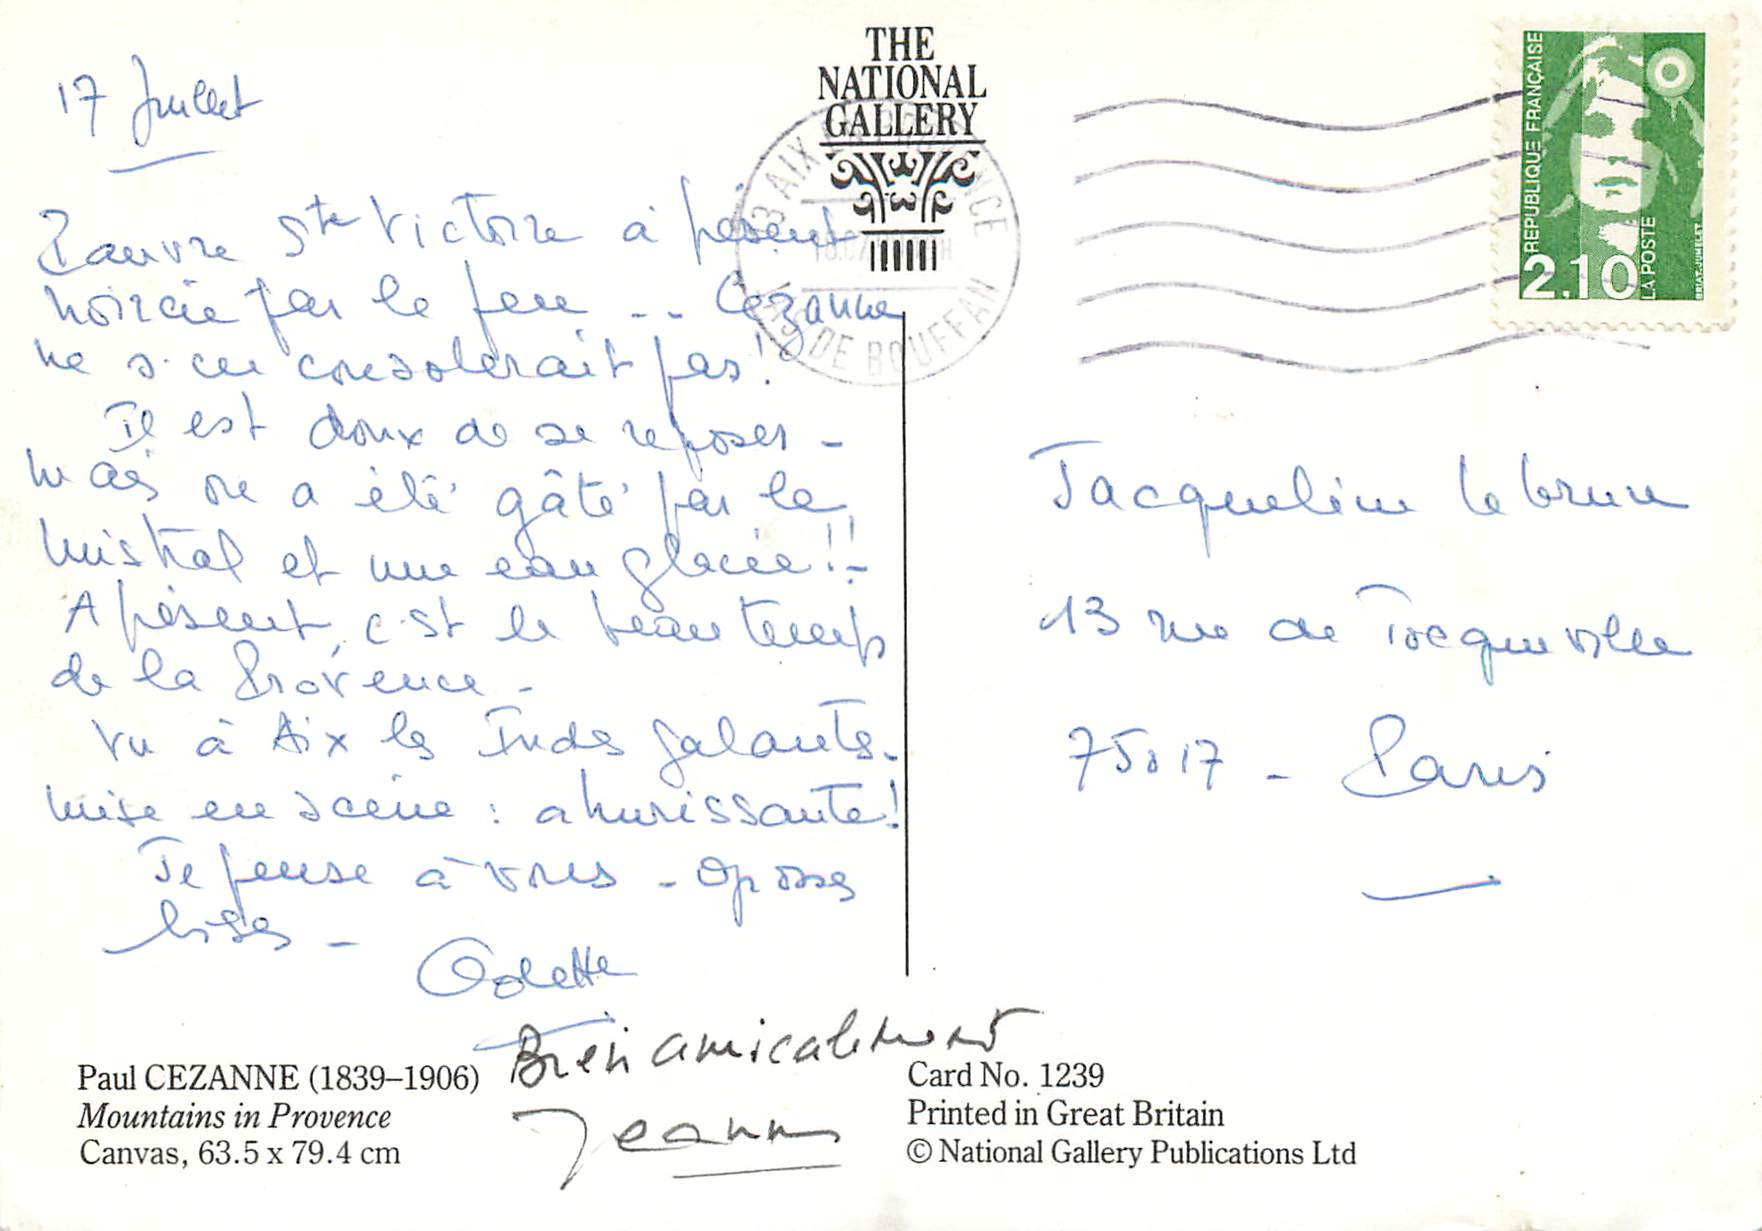 17 Juillet
Pauvre Ste Victoire à présent
noircie par le feu -- Cezanne
ne s'en consolerait pas!
Il est doux de se reposer -
mais on a été gâté par le
mistral et une eau glacée!!
A présent, c'est le beau temps
de la Provence -
Vu à Aix les Indes galantes.
mise en scène : ahurissante!
Je pense à vous - Grosses
bises -
Colette
Bien amicalement
Jeanne
Paul CEZANNE (1839–1906)
Mountains in Provence
Canvas, 63.5 x 79.4 cm
THE
NATIONAL
GALLERY
13 AIX EN PROVENCE
JAS DE BOUFFAN
REPUBLIQUE FRANÇAISE
2.10
LA POSTE
BRIAT-JUMELET
Jacqueline Lebrun
13 rue de Tocqueville
75017 - Paris
Card No. 1239
Printed in Great Britain
© National Gallery Publications Ltd